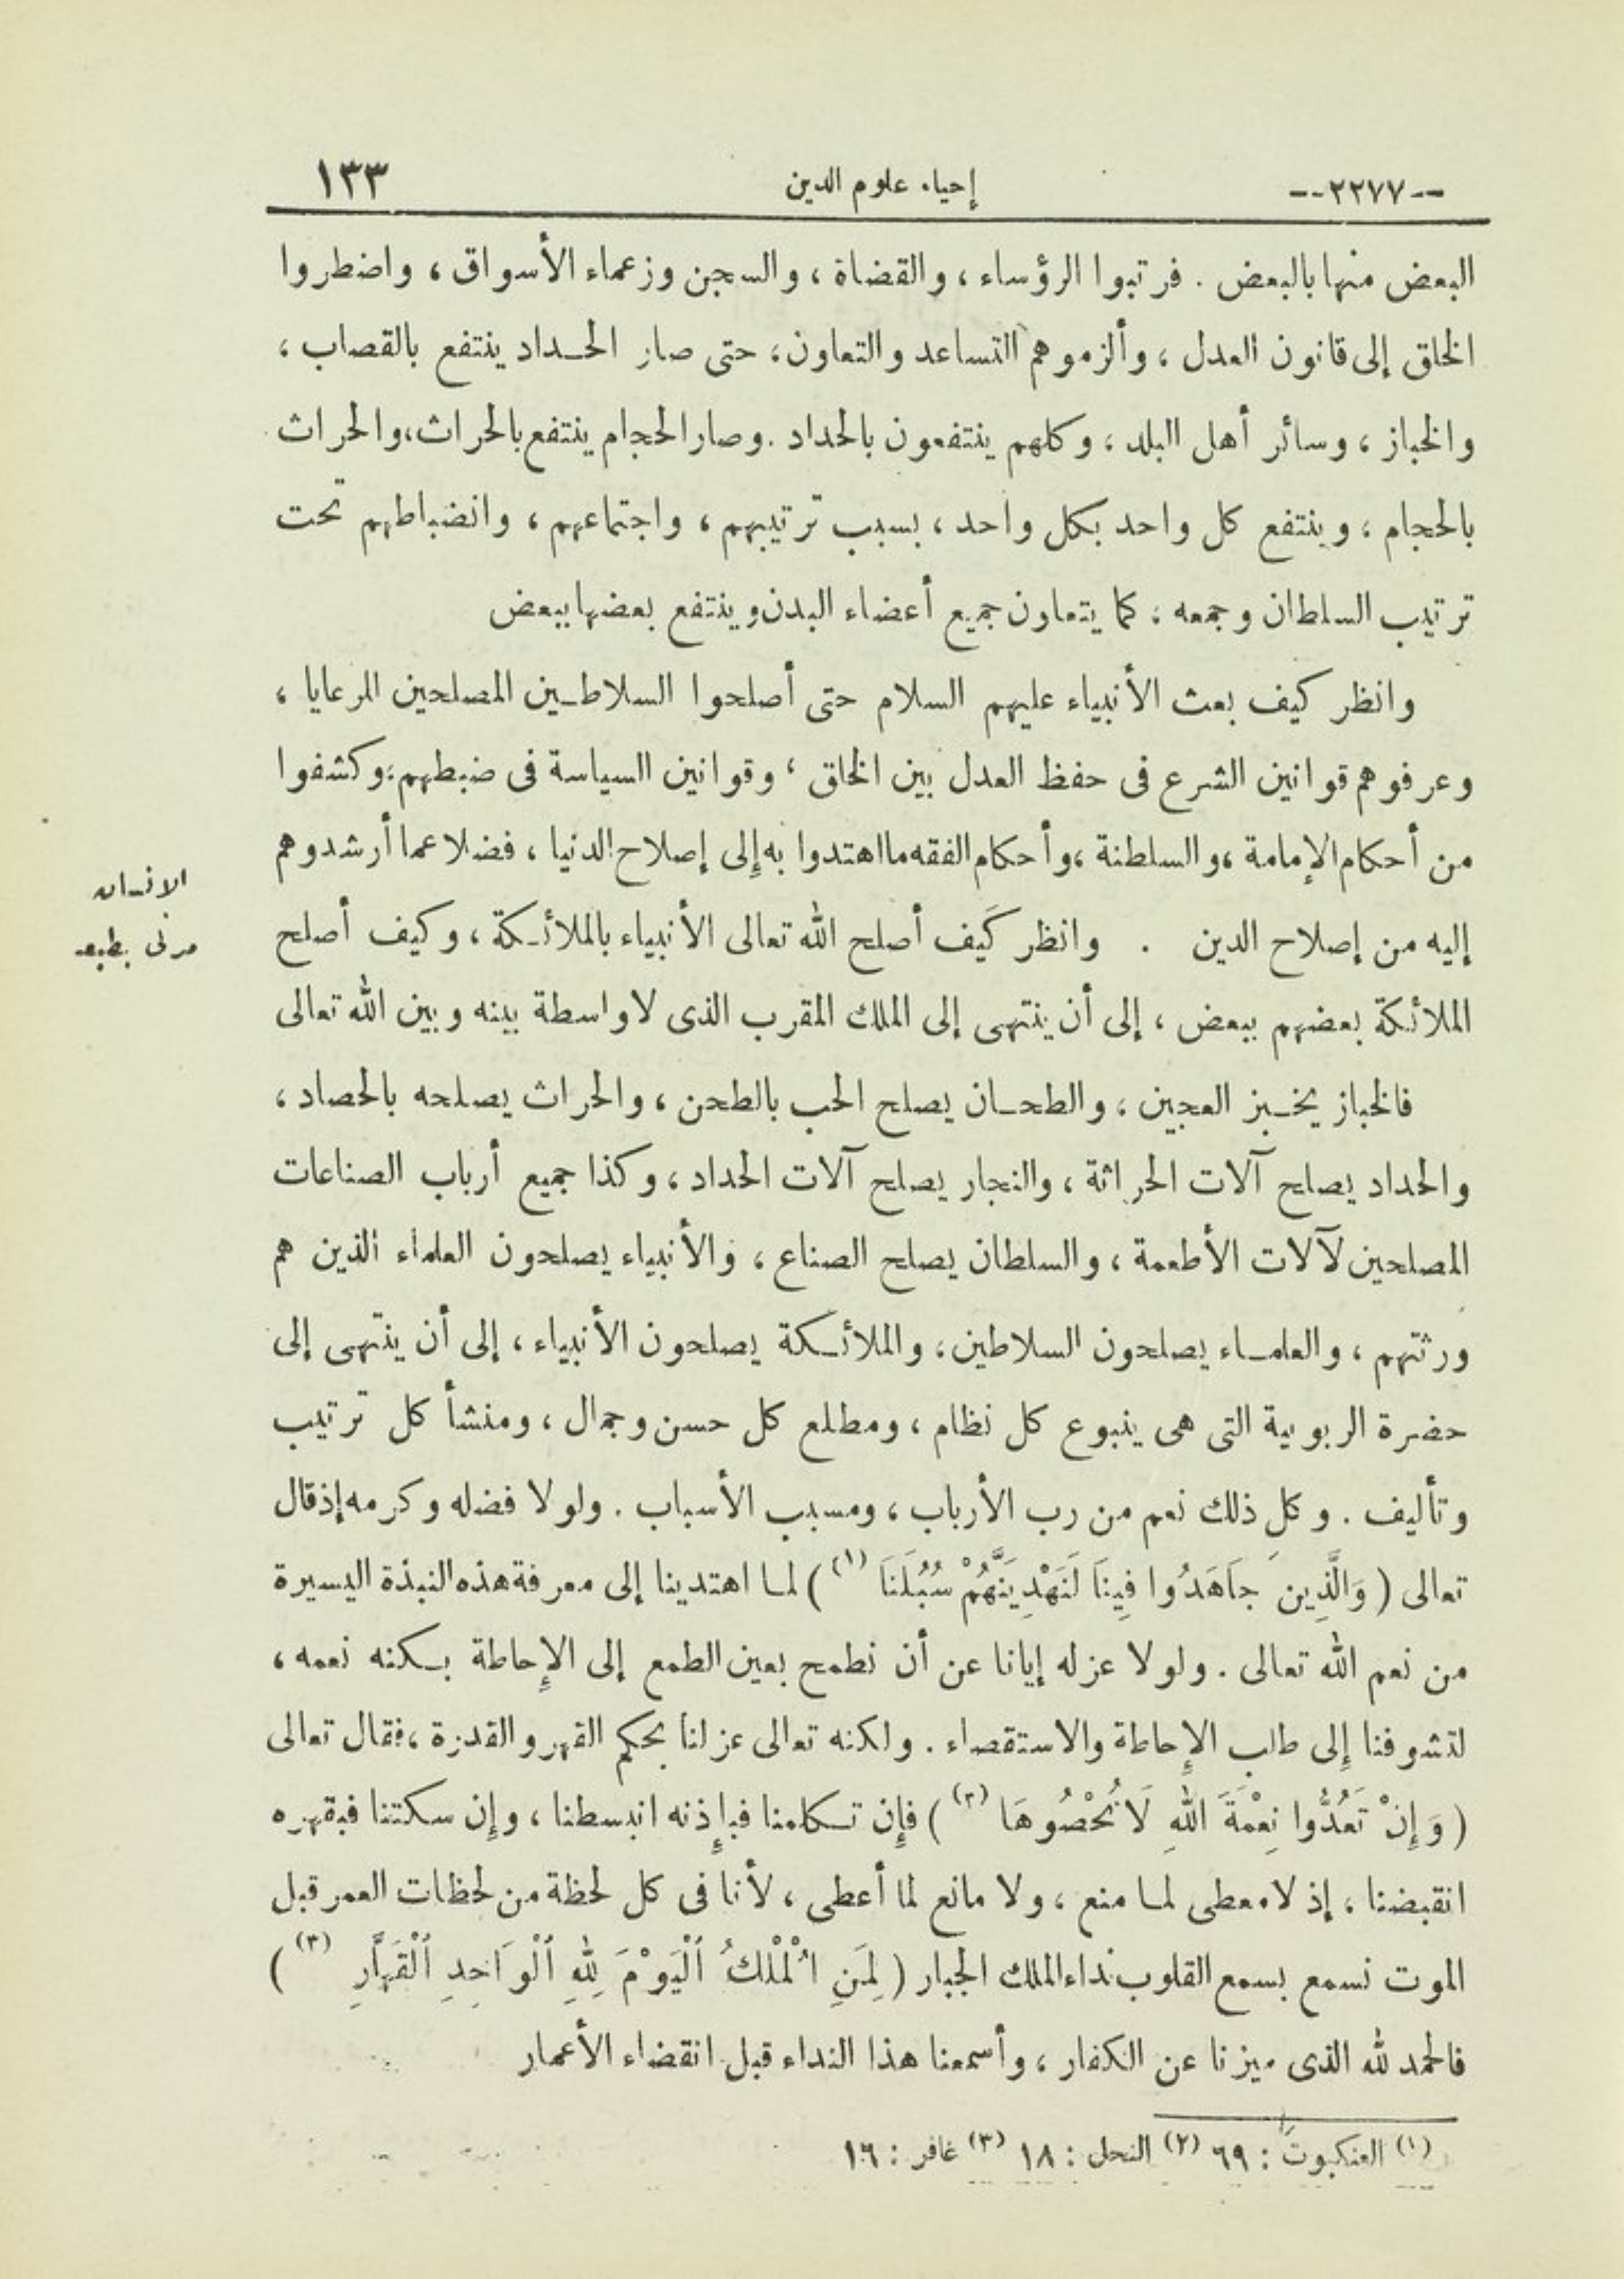 --٢٢٧٧--
إحياء علوم الدين
١٣٣
البعض منها بالبعض . فرتبوا الرؤساء ، والقضاة ، والسجن وزعماء الأسواق ، واضطروا
الخلق إلى قانون العدل ، وألزموهم التساعد والتعاون ، حتى صار الحداد ينتفع بالقصاب ،
والخباز ، وسائر أهل البلد ، وكلهم ينتفعون بالحداد . وصار الحجام ينتفع بالحراث ، والحراث
بالحجام ، وينتفع كل واحد بكل واحد ، بسبب ترتيبهم ، واجتماعهم ، وانضباطهم تحت
ترتيب السلطان وجمعه ، كما يتعاون جميع أعضاء البدن وينتفع بعضها ببعض
وانظر كيف بعث الأنبياء عليهم السلام حتى أصلحوا السلاطين المصلحين للرعايا ،
وعرفوهم قوانين الشرع فى حفظ العدل بين الخلق ، وقوانين السياسة فى ضبطهم ، وكشفوا
من أحكام الإمامة ، والسلطنة ، وأحكام الفقه ما اهتدوا به إلى إصلاح الدنيا ، فضلا عما أرشدوهم
إليه من إصلاح الدين . وانظر كَيف أصلح الله تعالى الأنبياء بالملائكة ، وكيف أصلح
الملائكة بعضهم ببعض ، إلى أن ينتهى إلى الملك المقرب الذى لا واسطة بينه وبين الله تعالى
الانسان
مدنى بطبعه
فالخباز يخبز العجين ، والطحان يصلح الحب بالطحن ، والحراث يصلحه بالحصاد ،
والحداد يصلح آلات الحراثة ، والنجار يصلح آلات الحداد ، وكذا جميع أرباب الصناعات
المصلحين لآلات الأطعمة ، والسلطان يصلح الصناع ، والأنبياء يصلحون العلماء الذين هم
ورثتهم ، والعلماء يصلحون السلاطين ، والملائكة يصلحون الأنبياء ، إلى أن ينتهى إلى
حضرة الربوبية التى هى ينبوع كل نظام ، ومطلع كل حسن وجمال ، ومنشأ كل ترتيب
وتأليف . وكل ذلك نعم من رب الأرباب ، ومسبب الأسباب . ولولا فضله وكرمه إذ قال
تعالى ( وَالَّذِينَ جَاَهَدُوا فِينَا لَنَهْدِيَنَّهُمْ سُبُلَنَا (١) ) لما اهتدينا إلى معرفة هذه النبذة اليسيرة
من نعم الله تعالى . ولولا عزله إيانا عن أن نطمح بعين الطمع إلى الإِحاطة بكنه نعمه ،
لتشوفنا إِلى طلب الإِحاطة والاستقصاء . ولكنه تعالى عزلنا بحكم القهر والقدرة ، فقال تعالى
( وَإِنْ تَعُدُّوا نِعْمَةَ اللهِ لَا تُحْصُوهَا (٢) ) فإِن تكلمنا فبإِذنه انبسطنا ، وإِن سكتنا فبقهره
انقبضنا ، إذ لا معطى لما منع ، ولا مانع لما أعطى ، لأنا فى كل لحظة من لحظات العمر قبل
الموت نسمع بسمع القلوب نداء الملك الجبار ( لِمَنِ اٌلْمُلْكُ اٌلْيَوْمَ لِلهِ اٌلْوَاحِدِ اٌلْقَهَّارِ (٣) )
فالحمد لله الذى ميزنا عن الكفار ، وأسمعنا هذا النداء قبل انقضاء الأعمار
(١) العنكبوت : ٦٩ (٢) النحل : ١٨ (٣) غافر : ١٦